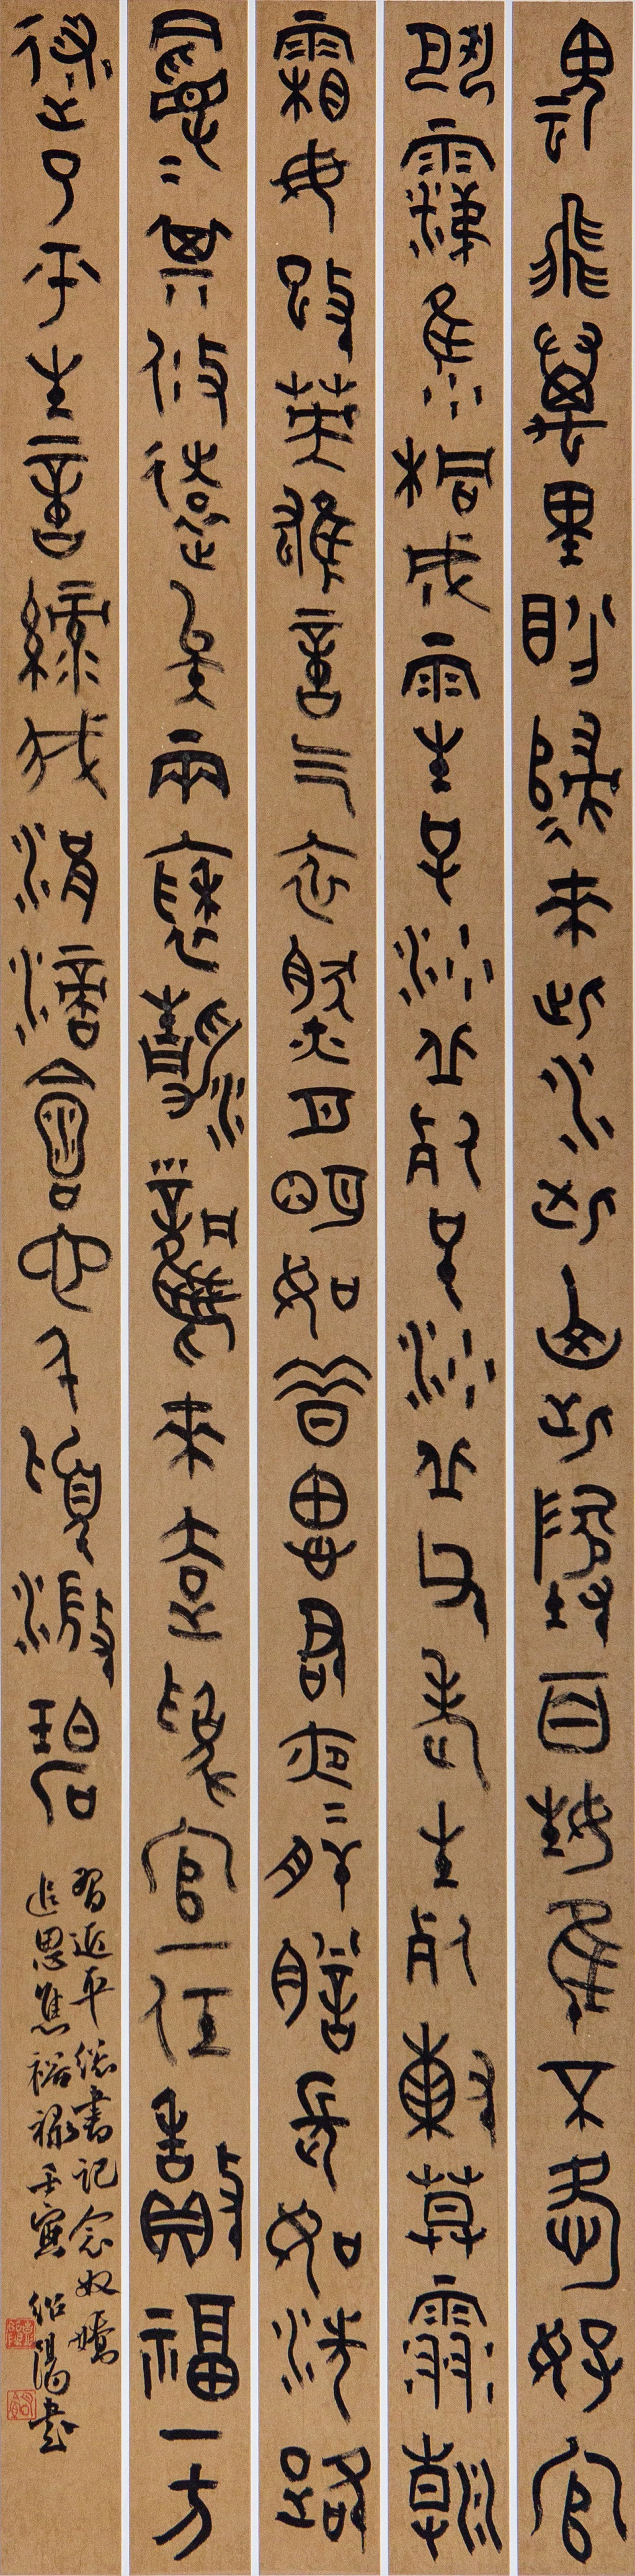 魂飛萬里盼歸來此水此山此地百姓誰不愛好官
把淚焦桐成雨生也沙丘死也沙丘父老生死繫暮雪朝
霜毋改英雄意氣依然月明如昔思君夜〻肝膽長如洗路
漫〻其修遠矣兩袖清風來去為官一任造福一方
遂了平生意綠我涓滴會它千頃澄碧
習近平總書記念奴嬌
追思焦裕祿壬寅 紹陽書